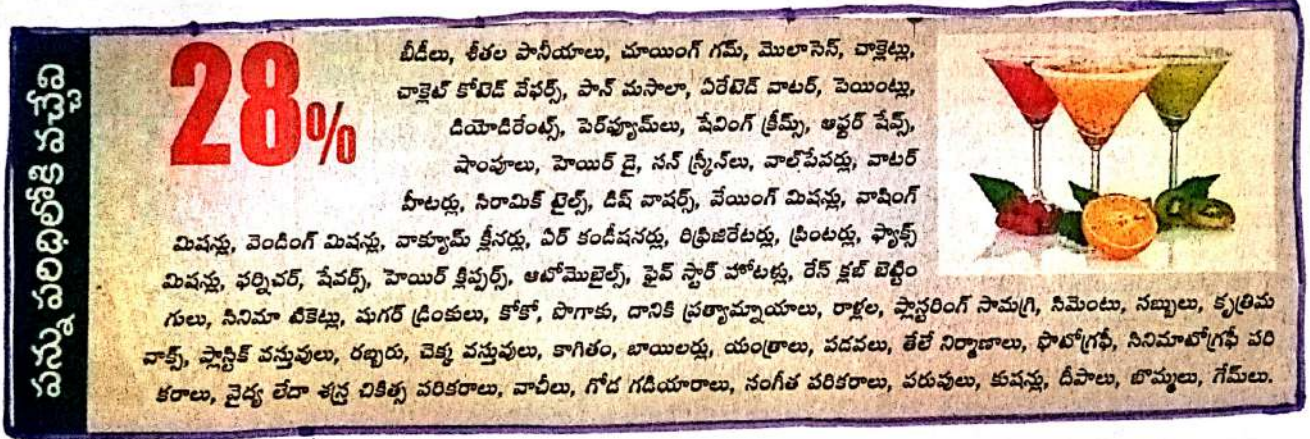 పన్ను పరిధిలోకి వచ్చేవి
28%
బీడీలు, శీతల పానీయాలు, చూయింగ్ గమ్, మొలాసెస్, చాక్లెట్లు,
చాక్లెట్ కోటెడ్ వేఫర్స్, పాన్ మసాలా, ఏరేటెడ్ వాటర్, పెయింట్లు,
డియోడిరేంట్స్, పెర్‌ఫ్యూమ్‌లు, షేవింగ్ క్రీమ్స్, ఆఫ్టర్ షేవ్స్,
షాంపూలు, హెయిర్ డై, సన్ స్క్రీన్‌లు, వాల్‌పేపర్లు, వాటర్
హీటర్లు, సిరామిక్ టైల్స్, డిష్ వాషర్స్, వేయింగ్ మిషన్లు, వాషింగ్
మిషన్లు, వెండింగ్ మిషన్లు, వాక్యూమ్ క్లీనర్లు, ఏర్ కండీషనర్లు, రిఫ్రిజిరేటర్లు, ప్రింటర్లు, ఫ్యాక్స్
మిషన్లు, ఫర్నిచర్, షేవర్స్, హెయిర్ క్లిప్పర్స్, ఆటోమొబైల్స్, ఫైవ్ స్టార్ హోటళ్లు, రేస్ క్లబ్ బెట్టిం
గులు, సినిమా టికెట్లు, షుగర్ డ్రింకులు, కోకో, పొగాకు, దానికి ప్రత్యామ్నాయాలు, రాళ్లల, ప్లాస్టరింగ్ సామగ్రి, సిమెంటు, సబ్బులు, కృత్రిమ
వాక్స్, ప్లాస్టిక్ వస్తువులు, రబ్బరు, చెక్క వస్తువులు, కాగితం, బాయిలర్లు, యంత్రాలు, పడవలు, తేలే నిర్మాణాలు, ఫొటోగ్రఫీ, సినిమాటోగ్రఫీ పరి
కరాలు, వైద్య లేదా శస్త్ర చికిత్స పరికరాలు, వాచీలు, గోడ గడియారాలు, సంగీత పరికరాలు, పరుపులు, కుషన్లు, దీపాలు, బొమ్మలు, గేమ్‌లు.